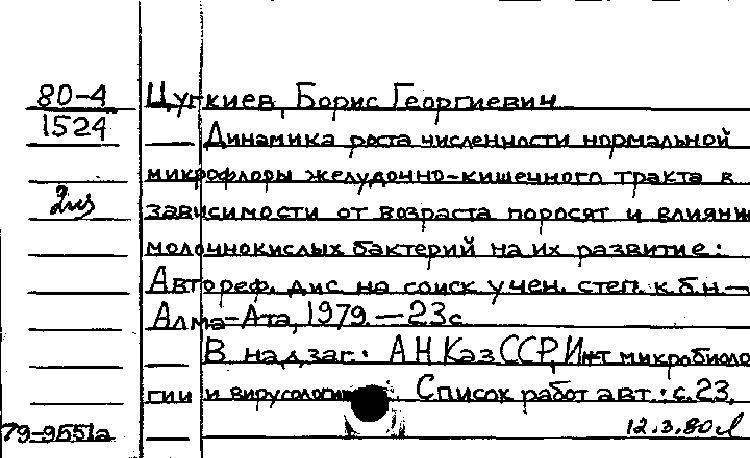 80-4 Цугкиев, Борис Георгиевич
1524 Динамика роста численности нормальной
микрофлоры желудочно-кишечного тракта в
зависимости от возраста поросят и влияни
молочнокислых бактерий на их развитие:
Автореф. дис. на соиск учен. степ. к.б.н—
Алма-Ата, 1979.—23с
В надзаг.: АН КазССР, Ин-т микробиоло
гии и вирусологии. Список работ авт.: с.23.
79-9551а 12.3.80